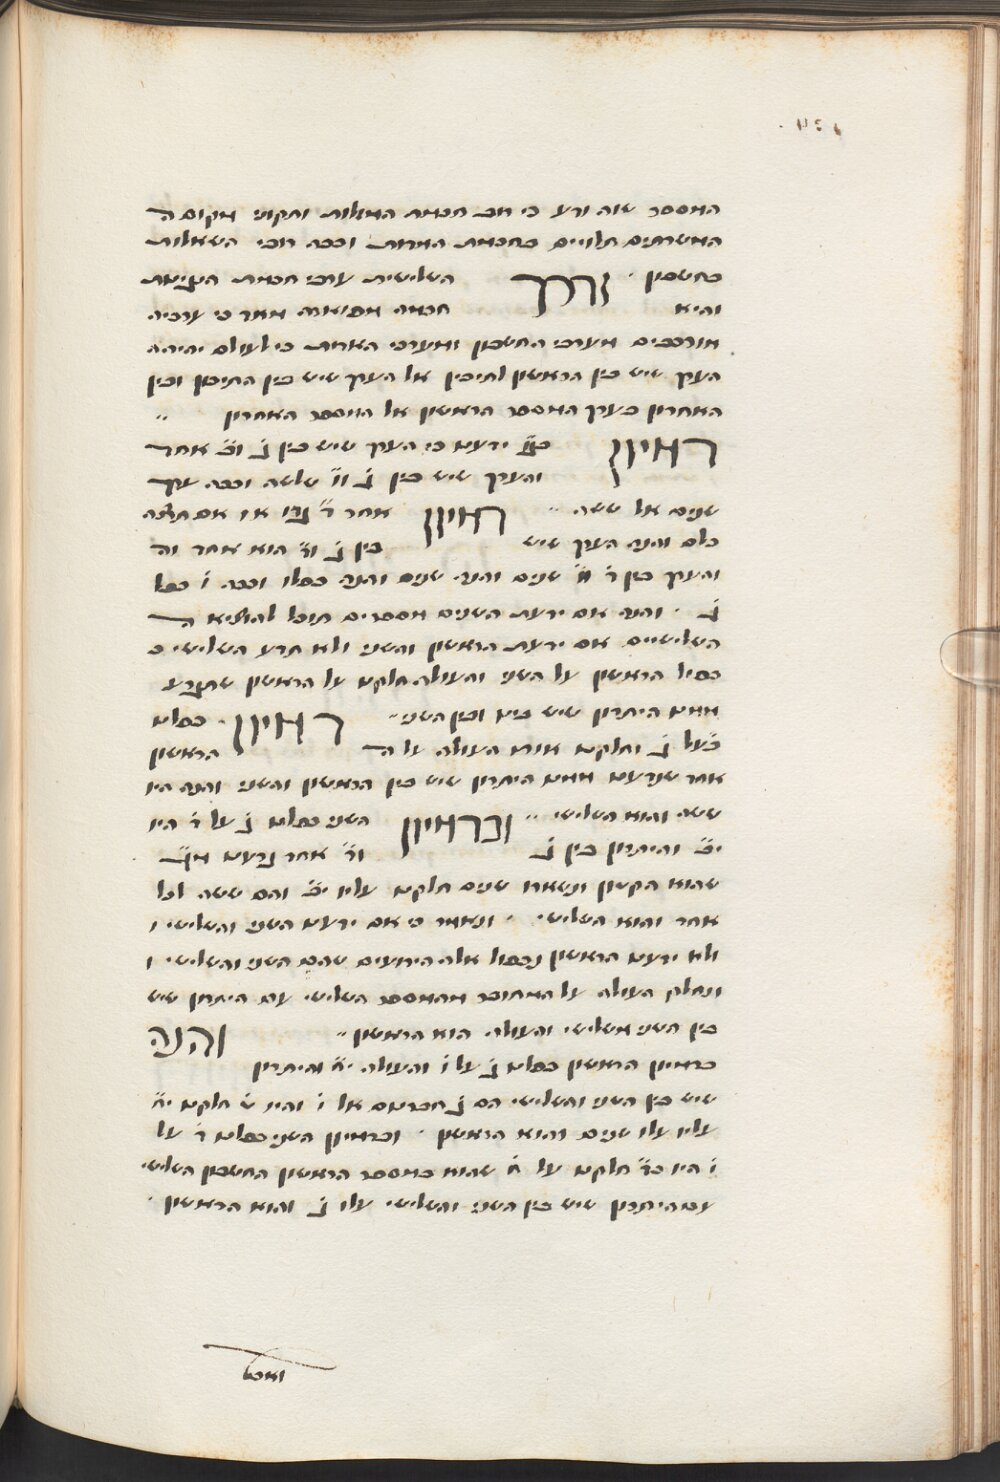 המספר שוה ודע כי רוב חכמת המזלות ותקוני מקום ה
המשרתים תלויים בחכמת המדות וככה רובי השאלות
בחשבון · ודרך השלישית ערכי חכמת הנגינות
והיא חכמה מפוארה מאד כי ערכיה
מורכבים מערכי החשבון ומערכי המדות כי לעולם יהיה
הערך שיש בין הראשון לתיכון אל הערך שיש בין התיכון ובין
האחרון כערך המספר הראשון אל המספר האחרון
דמיון ידענו כי הערך שיש בין ב וג אחד
והערך שיש בין ג ו שלשה וככה ערך
שנים אל ששה דמיון אחר
כלם והנה הערך שיש בין ג וד הוא אחד
והערך בין ד ו שנים והנה שנים והנה כפלו וככה ו כפל
ג · והנה אם ידעת השנים מספרים תוכל להוציא ה
השלישיים אם ידעת הראשון והשני ולא תדע השלישי
כפול הראשון על השני והעולה חלקם על הראשון שתגרע
ממנו היתרון שיש בינו ובין השני דמיון · כפלנו
ב על ג וחלקנו אותו העולה על ה הראשון
אחר שגרענו ממנו היתרון שיש בין הראשון והשני והנה היו
ששה והוא השלישי ובדמיון השני כפלנו ג על ד היו
יב והיתרון בין ג וד אחד גרענו מג
שהוא הקטון ונשארו שנים חלקנו עליו יב והם ששה לכל
אחד והוא השלישי · ונאמר כי אם ידענו השני והשלישי ו
ולא ידענו הראשון נכפול אלה הידועים שהם השני והשלישי ו
ונחלק העולה על המחובר מהמספר השלישי עם היתרון שיש
בין השני והשלישי והעולה הוא הראשון והנה
בדמיון הראשון כפלנו ג על ו והעולה יח והיתרון
שיש בין השני והשלישי הם ג חברנום אל ו והיו ט חלקנו יח
עליו עלו שנים והוא הראשון · ובדמיון השני כפלנו ד על
ו היו כד חלקנו על ח שהוא במספר הראשון החשבון השלישי
עם היתרון שיש בין השני והשלישי עלו ג והוא הראשון ·
ואכפול